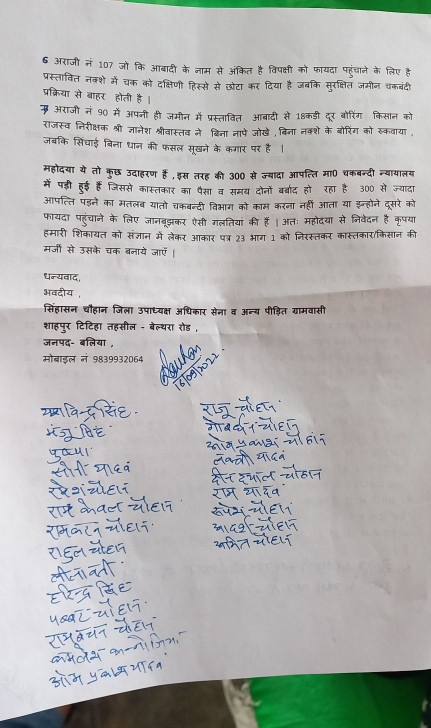 6 अराजी नं 107 जो कि आबादी के नाम से अंकित है विपक्षी को फायदा पहुंचाने के लिए है
प्रस्तावित नक्शे में चक को दक्षिणी हिस्से से छोटा कर दिया है जबकि सुरक्षित जमीन चकबंदी
प्रक्रिया से बाहर होती है |
7 अराजी नं 90 में अपनी ही जमीन में प्रस्तावित आबादी से 18कडी दूर बोरिंग किसान को
राजस्व निरीक्षक श्री ज्ञानेश श्रीवास्तव ने बिना नापे जोखे , बिना नक्शे के बोरिंग को रुकवाया ,
जबकि सिंचाई बिना धान की फसल सूखने के कगार पर है |
महोदया ये तो कुछ उदाहरण हैं , इस तरह की 300 से ज्यादा आपत्ति मा0 चकबन्दी न्यायालय
में पड़ी हुई हैं जिससे कास्तकार का पैसा व समय दोनों बर्बाद हो रहा है 300 से ज्यादा
आपत्ति पड़ने का मतलब यातो चकबन्दी विभाग को काम करना नहीं आता या इन्होने दूसरे को
फायदा पहुंचाने के लिए जानबूझकर ऐसी गलतिया की हैं | अतः महोदया से निवेदन है कृपया
हमारी शिकायत को संज्ञान में लेकर आकार पत्र 23 भाग 1 को निरस्तकर कास्तकार/किसान की
मर्जी से उसके चक बनाये जाएँ |
धन्यवाद,
भवदीय ,
सिंहासन चौहान जिला उपाध्यक्ष अधिकार सेना व अन्य पीड़ित ग्रामवासी
शाहपुर टिटिहा तहसील - बेल्थरा रोड ,
जनपद- बलिया ,
मोबाइल नं 9839932064
16/09/2022
सिंह
मंजू सिंह
पुष्पा
सोनी यादव
रमेश चौहान
राम केवल चौहान
रामकरन चौहान
राहुल चौहान
लीलावती
हरिन्द्र सिंह
पब्बर चौहान
रामबचन चौहान
कमलेश कन्नौजिया
ओम प्रकाश यादव
राजू चौहान
गोबर्धन चौहान
ओम प्रकाश चौहान
यादव
दीन दयाल चौहान
राम यादव
रूपेश चौहान
आदर्श चौहान
अमित चौहान